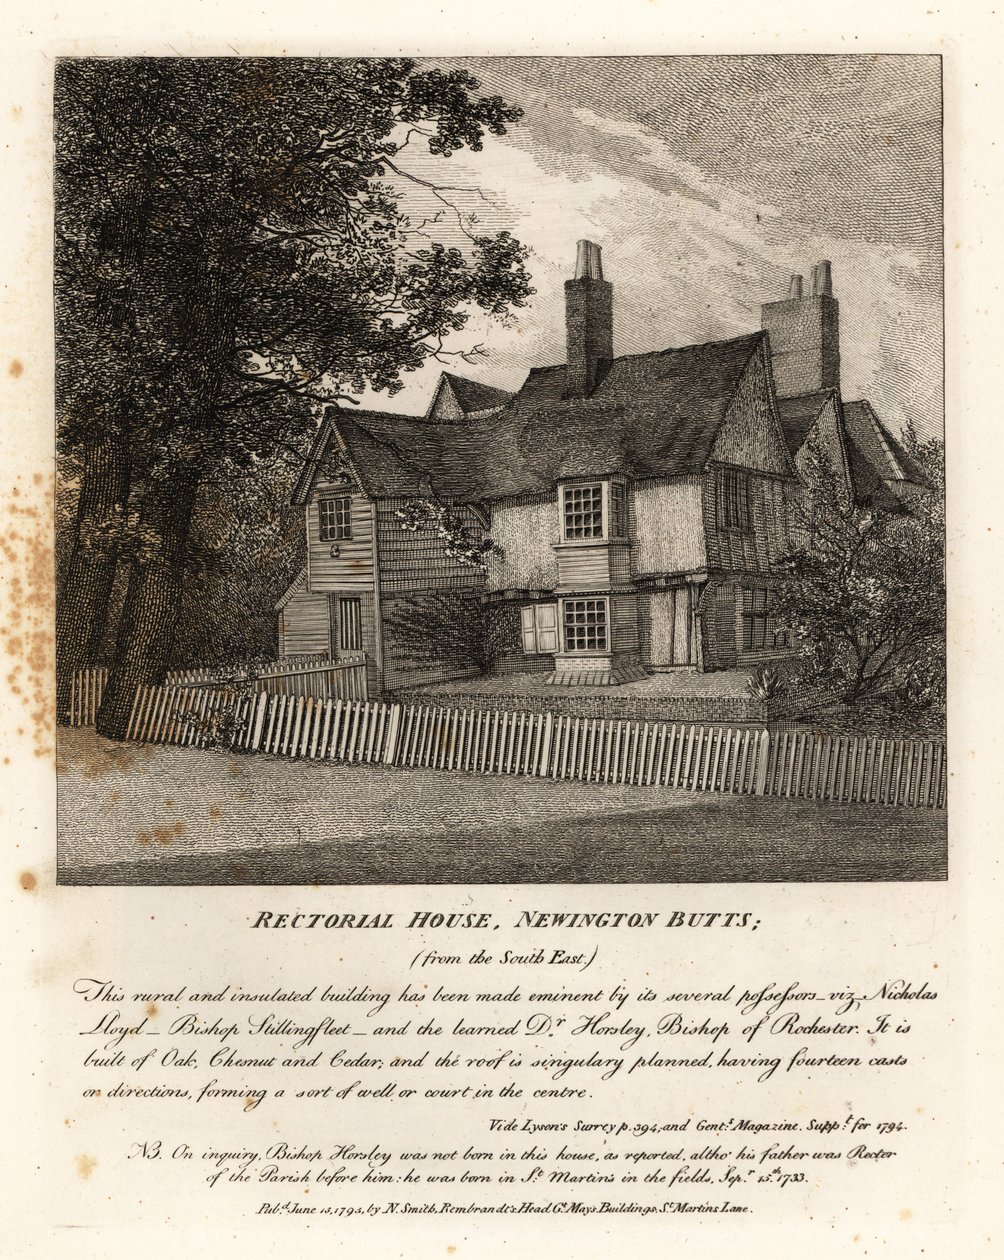 RECTORIAL HOUSE, NEWINGTON BUTTS;
(from the South East.)
This rural and insulated building has been made eminent by its several poſseſsors_viz, Nicholas
Lloyd_ Bishop Stillingfleet_and the learned Dr. Horsley, Bishop of Rochester. It is
built of Oak, Chesnut and Cedar; and the roof is singulary planned, having fourteen casts
or directions, forming a sort of well or court in the centre.
Vide Lyson's Surrey p. 394, and Gent.s Magazine. Supp.t for 1794.
NB. On inquiry, Bishop Horsley was not born in this house, as reported, altho' his father was Rector
of the Parish before him: he was born in St. Martin's in the fields, Sep.r 15.th 1733.
Pub.d June 15, 1795, by N. Smith, Rembrandt's Head Gt. Mays Buildings, St. Martins Lane.